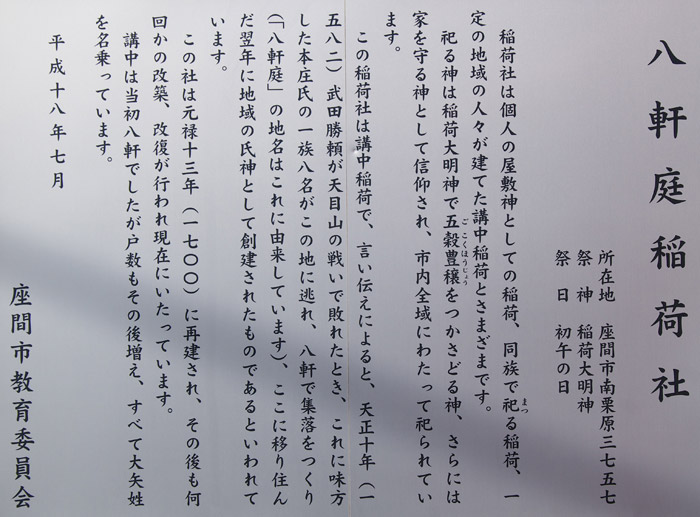 八軒庭稲荷社
所在地　座間市南栗原三七五七
祭　神　稲荷大明神
祭　日　初午の日
稲荷社は個人の屋敷神としての稲荷、同族で祀る稲荷、一
定の地域の人々が建てた講中稲荷とさまざまです。
祀る神は稲荷大明神で五穀豊穣をつかさどる神、さらには
家を守る神として信仰され、市内全域にわたって祀られてい
ます。
この稲荷社は講中稲荷で、言い伝えによると、天正十年（一
五八二）武田勝頼が天目山の戦いで敗れたとき、これに味方
した本庄氏の一族八名がこの地に逃れ、八軒で集落をつくり
（「八軒庭」の地名はこれに由来しています）、ここに移り住ん
だ翌年に地域の氏神として創建されたものであるといわれて
います。
この社は元禄十三年（一七〇〇）に再建され、その後も何
回かの改築、改復が行われ現在にいたっています。
講中は当初八軒でしたが戸数もその後増え、すべて大矢姓
を名乗っています。
平成十八年七月
座間市教育委員会